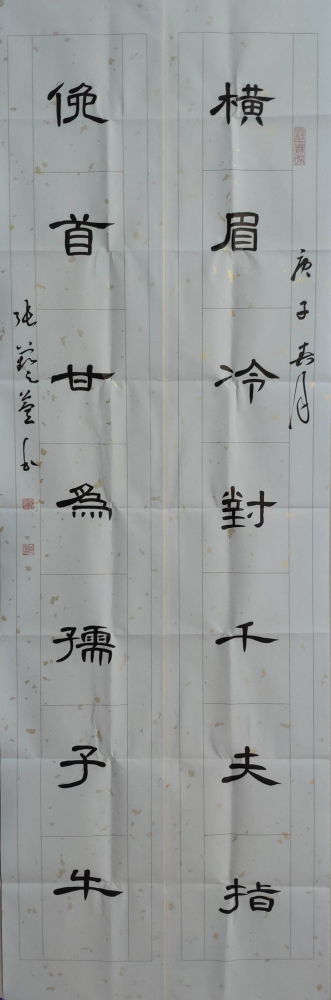 庚子春月
橫眉冷對千夫指
俛首甘為孺子牛